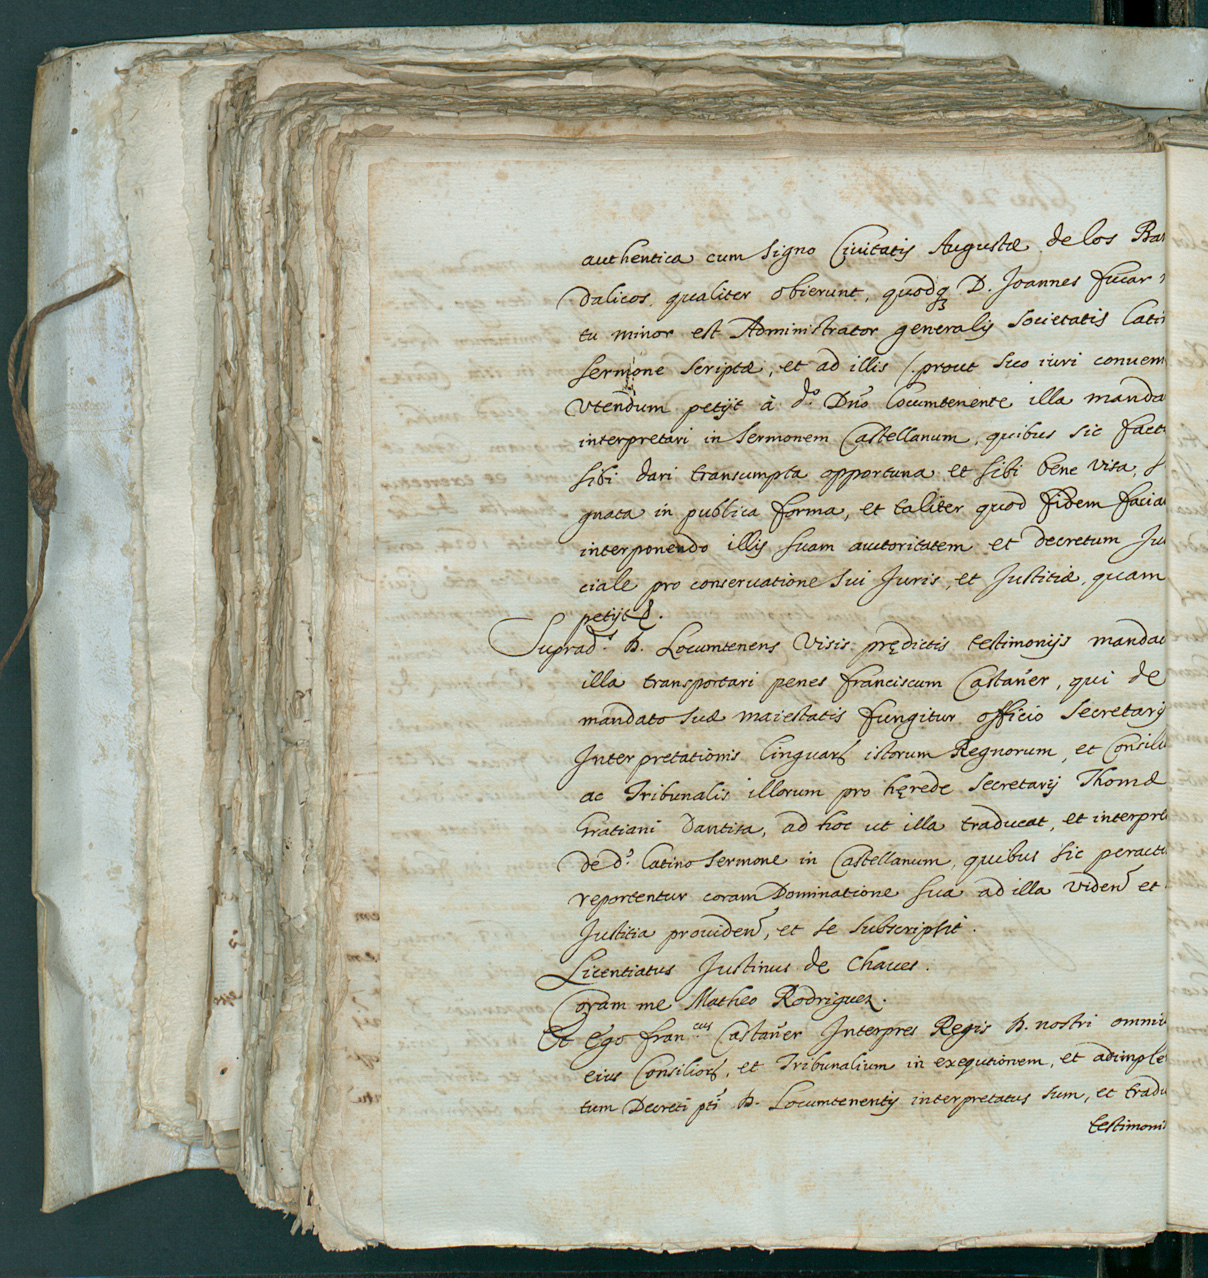 authentica cum signo Civitatis Augustæ de los Ban
dalicos, qualiter obierunt, quodq D. Joannes fucar
tu minor est Administrator generalis societatis Lati
sermone scriptæ, et ad illis (prout suo iuri conuem
Vtendum petijt à d.º Dño Locumtenente illa manda
interpretari in sermonem Castellanum, quibus sic fact
sibi dari transumpta opportuna et sibi bene visa, s
gnata in publica forma, et taliter quod fidem facia
interponendo illis suam autoritatem et decretum Ju
ciale pro conseruatione sui Juris, et Justitiæ, quam
petijt &.
Suprad.s D. Locumtenens Visis prędictis testimonijs manda
illa transportari penes franciscum Castañer, qui de
mandato suæ maiestatis fungitur officio secretarij
Interpretationis linguarũ istorum Regnorum, et Consili
ac Tribunalis illorum pro hęrede secretarij Thomæ
Gratiani Dantisa, ad hoc ut illa traducat, et interpre
de d.º latino sermone in Castellanum, quibus sic peract
reportentur coram Dominatione sua ad illa videnº et
Justitia prouidenº, et se subscripsit.
Licentiatus Justinus de Chaues.
Coram me Matheo Rodriguez.
Et Ego fran.cus Castañer Interpres Regis D. nostri omniu
eius Consiliorũ, et Tribunalium in exequtionem, et adimple
tum Decreti pti D. Locumtenentis interpretatus sum, et tradu
testimoni